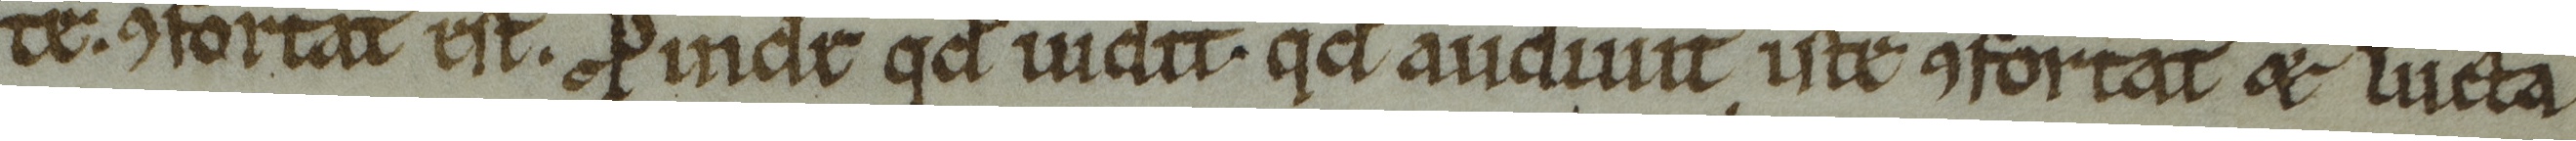 te. ꝯfortat est. ꝓinde qd uidit. qd audiuit iste ꝯfortat & lucta